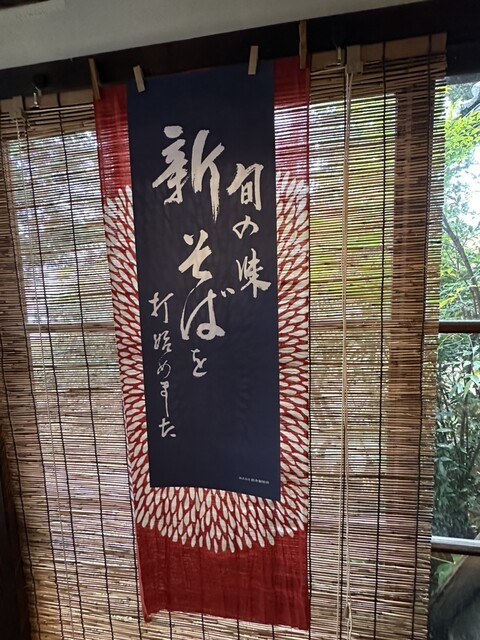 旬の味
新そばを
打始めました